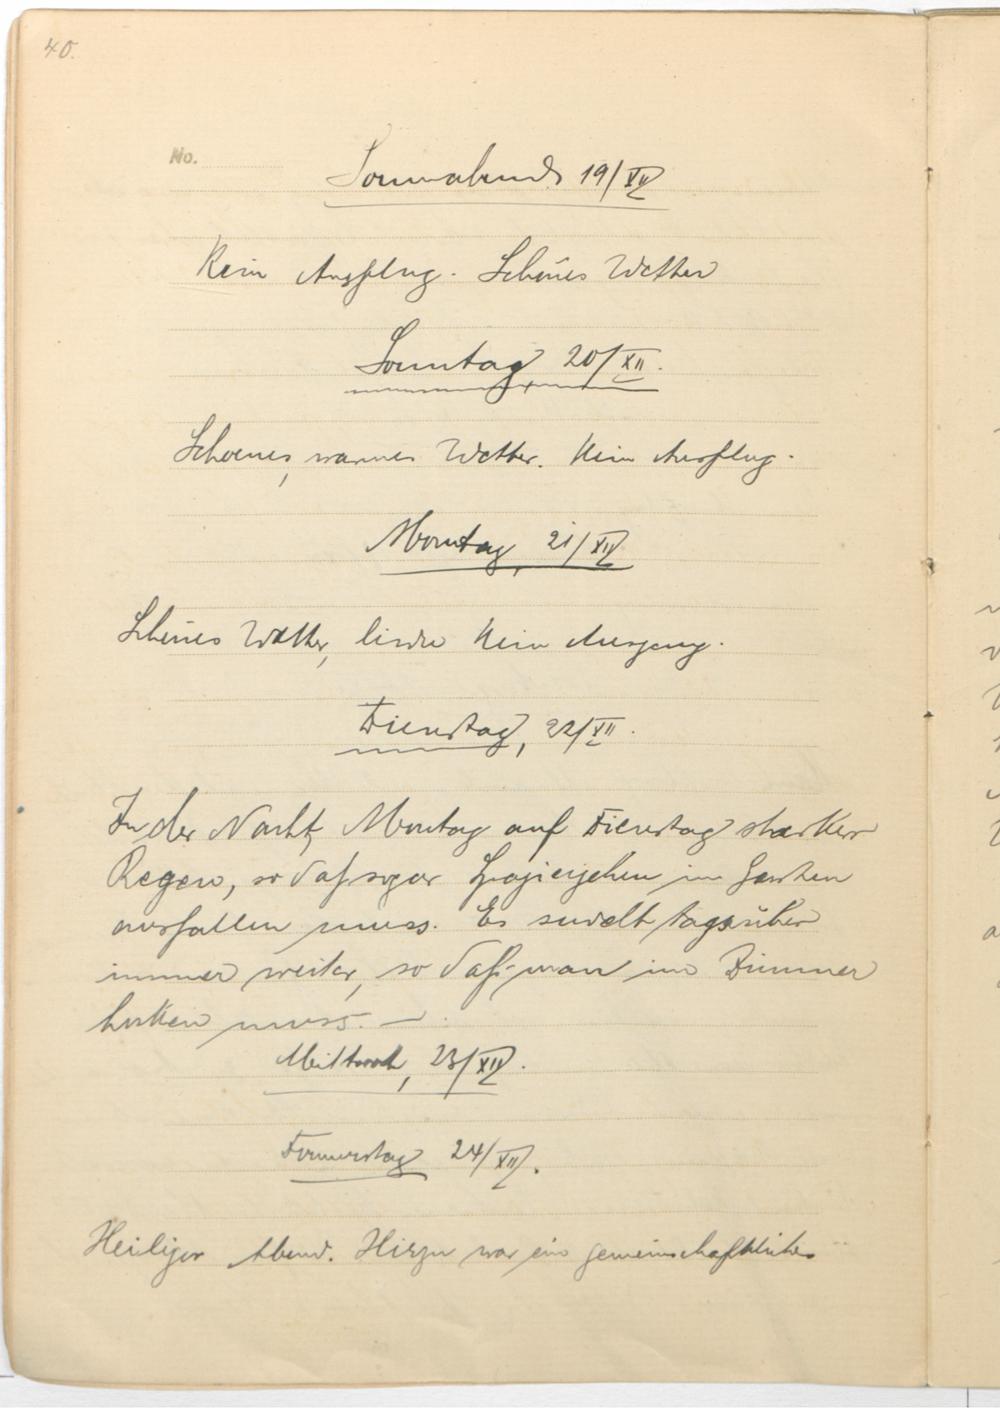 40.
No.
Sonnabend 19/XII
Kein Ausflug. Schönes Wetter
Sonntag, 20/XII.
Schoenes, warmes Wetter. Kein Ausflug.
Montag, 21/XII
Schönes Wetter, Kein Ausgang.
Dienstag, 22/XII.
In der Nacht, Montag auf Dienstag starker
Regen, so daß sogar Spaziergehen im Garten
ausfallen muss. Es sudelt tagsüber
immer weiter, so daß man im Zimmer
hocken muss. —
Mittwoch, 23/XII.
Donnerstag 24/XII.
Heiliger Abend. Hierzu war ein gemeinschaftliches